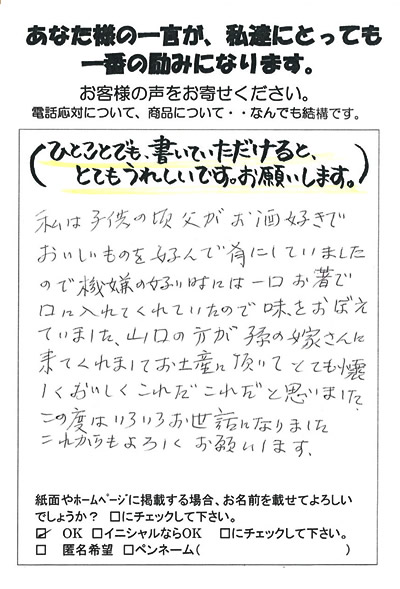 あなた様の一言が、私達にとっても
一番の励みになります。
お客様の声をお寄せください。
電話応対について、商品について・・なんでも結構です。
(ひとことでも、書いていただけると、
とてもうれしいです。お願いします。)
私は子供の頃父がお酒好きで
おいしいものを好んで肴にしていました
ので機嫌の好い時には一口お箸で
口に入れてくれていたので味をおぼえ
ていました、山口の方が孫の嫁さんに
来てくれましてお土産に頂いてとても懐
しくおいしくこれだこれだと思いました
この度はいろいろお世話になりました
これからもよろしくお願いします。
紙面やホームページに掲載する場合、お名前を載せてよろしい
でしょうか? □にチェックして下さい。
☑ OK □イニシャルならOK □にチェックして下さい。
□ 匿名希望 □ペンネーム( )